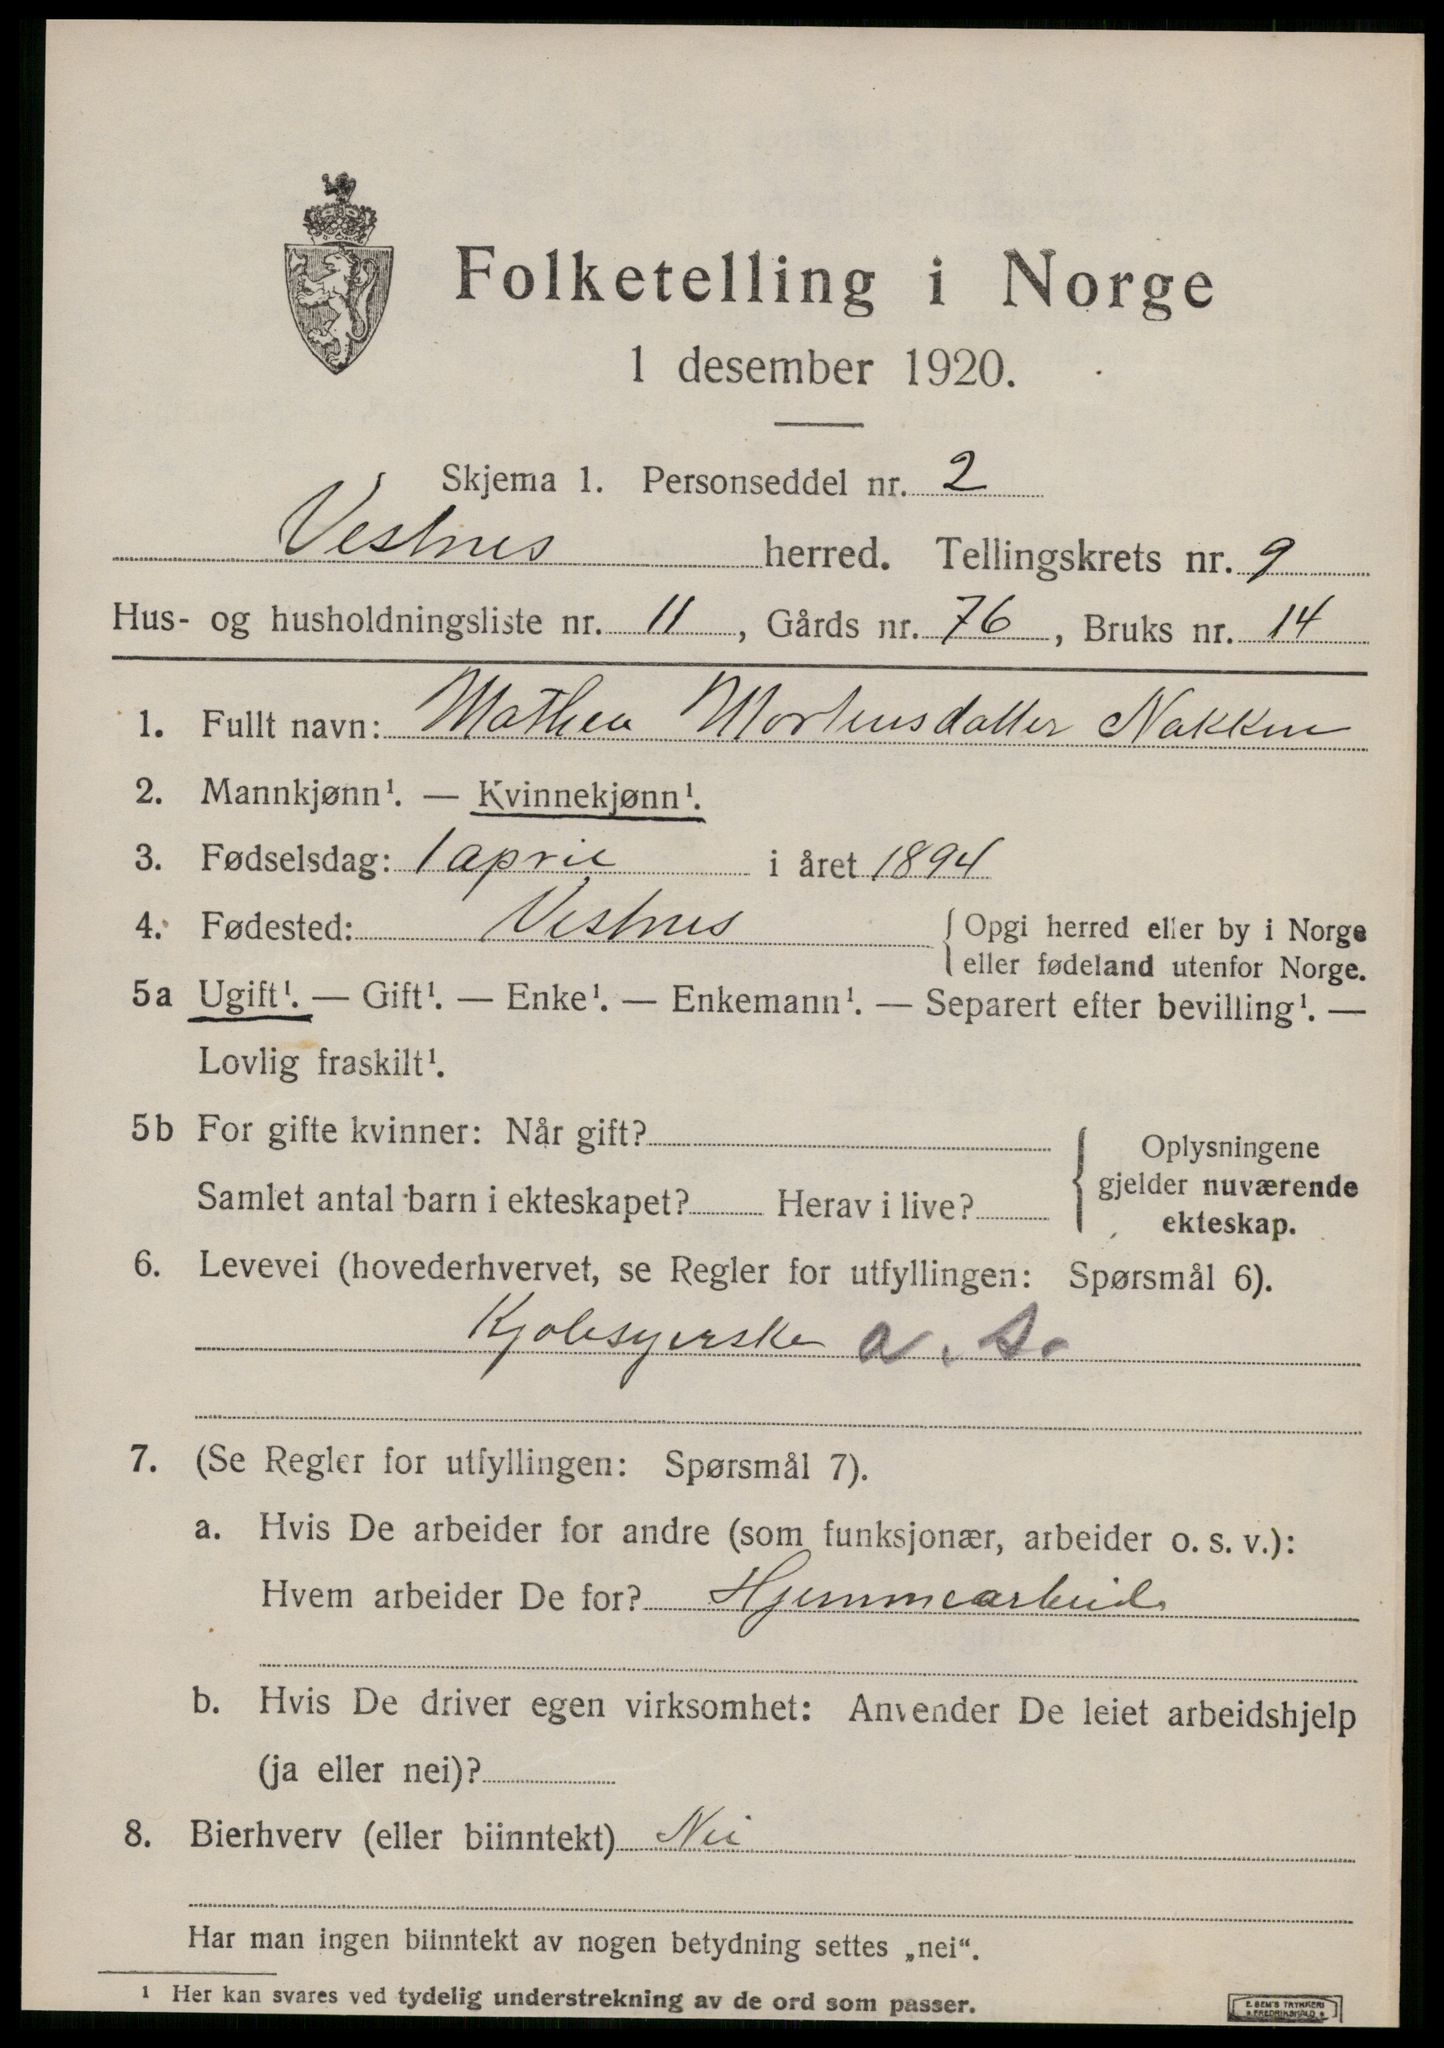 Folketelling i Norge
1 desember 1920.
Skjema 1. Personseddel nr. 2
Vestnes herred. Tellingskrets nr. 9
Hus- og husholdningsliste nr. 11, Gårds nr. 76, Bruks nr. 14
1. Fullt navn: Mathea Mortensdatter Nakken
2. Mannkjønn¹. — Kvinnekjønn¹.
3. Fødselsdag: 1 april i året 1894
4. Fødested: Vestnes { Opgi herred eller by i Norge
eller fødeland utenfor Norge.
5a Ugift¹. — Gift¹. — Enke¹. — Enkemann¹. — Separert efter bevilling¹. —
Lovlig fraskilt¹.
5b For gifte kvinner: Når gift?
Samlet antal barn i ekteskapet? Herav i live?
{ Oplysningene
gjelder nuværende
ekteskap.
6. Levevei (hovederhvervet, se Regler for utfyllingen: Spørsmål 6).
Kjolesyerske a. s.
7. (Se Regler for utfyllingen: Spørsmål 7).
a. Hvis De arbeider for andre (som funksjonær, arbeider o. s. v.):
Hvem arbeider De for? Hjemmearbeid
b. Hvis De driver egen virksomhet: Anvender De leiet arbeidshjelp
(ja eller nei)?
8. Bierhverv (eller biinntekt) Nei
Har man ingen biinntekt av nogen betydning settes „nei“.
¹ Her kan svares ved tydelig understrekning av de ord som passer.
E. SEM'S TRYKKERI
FREDRIKSHALD